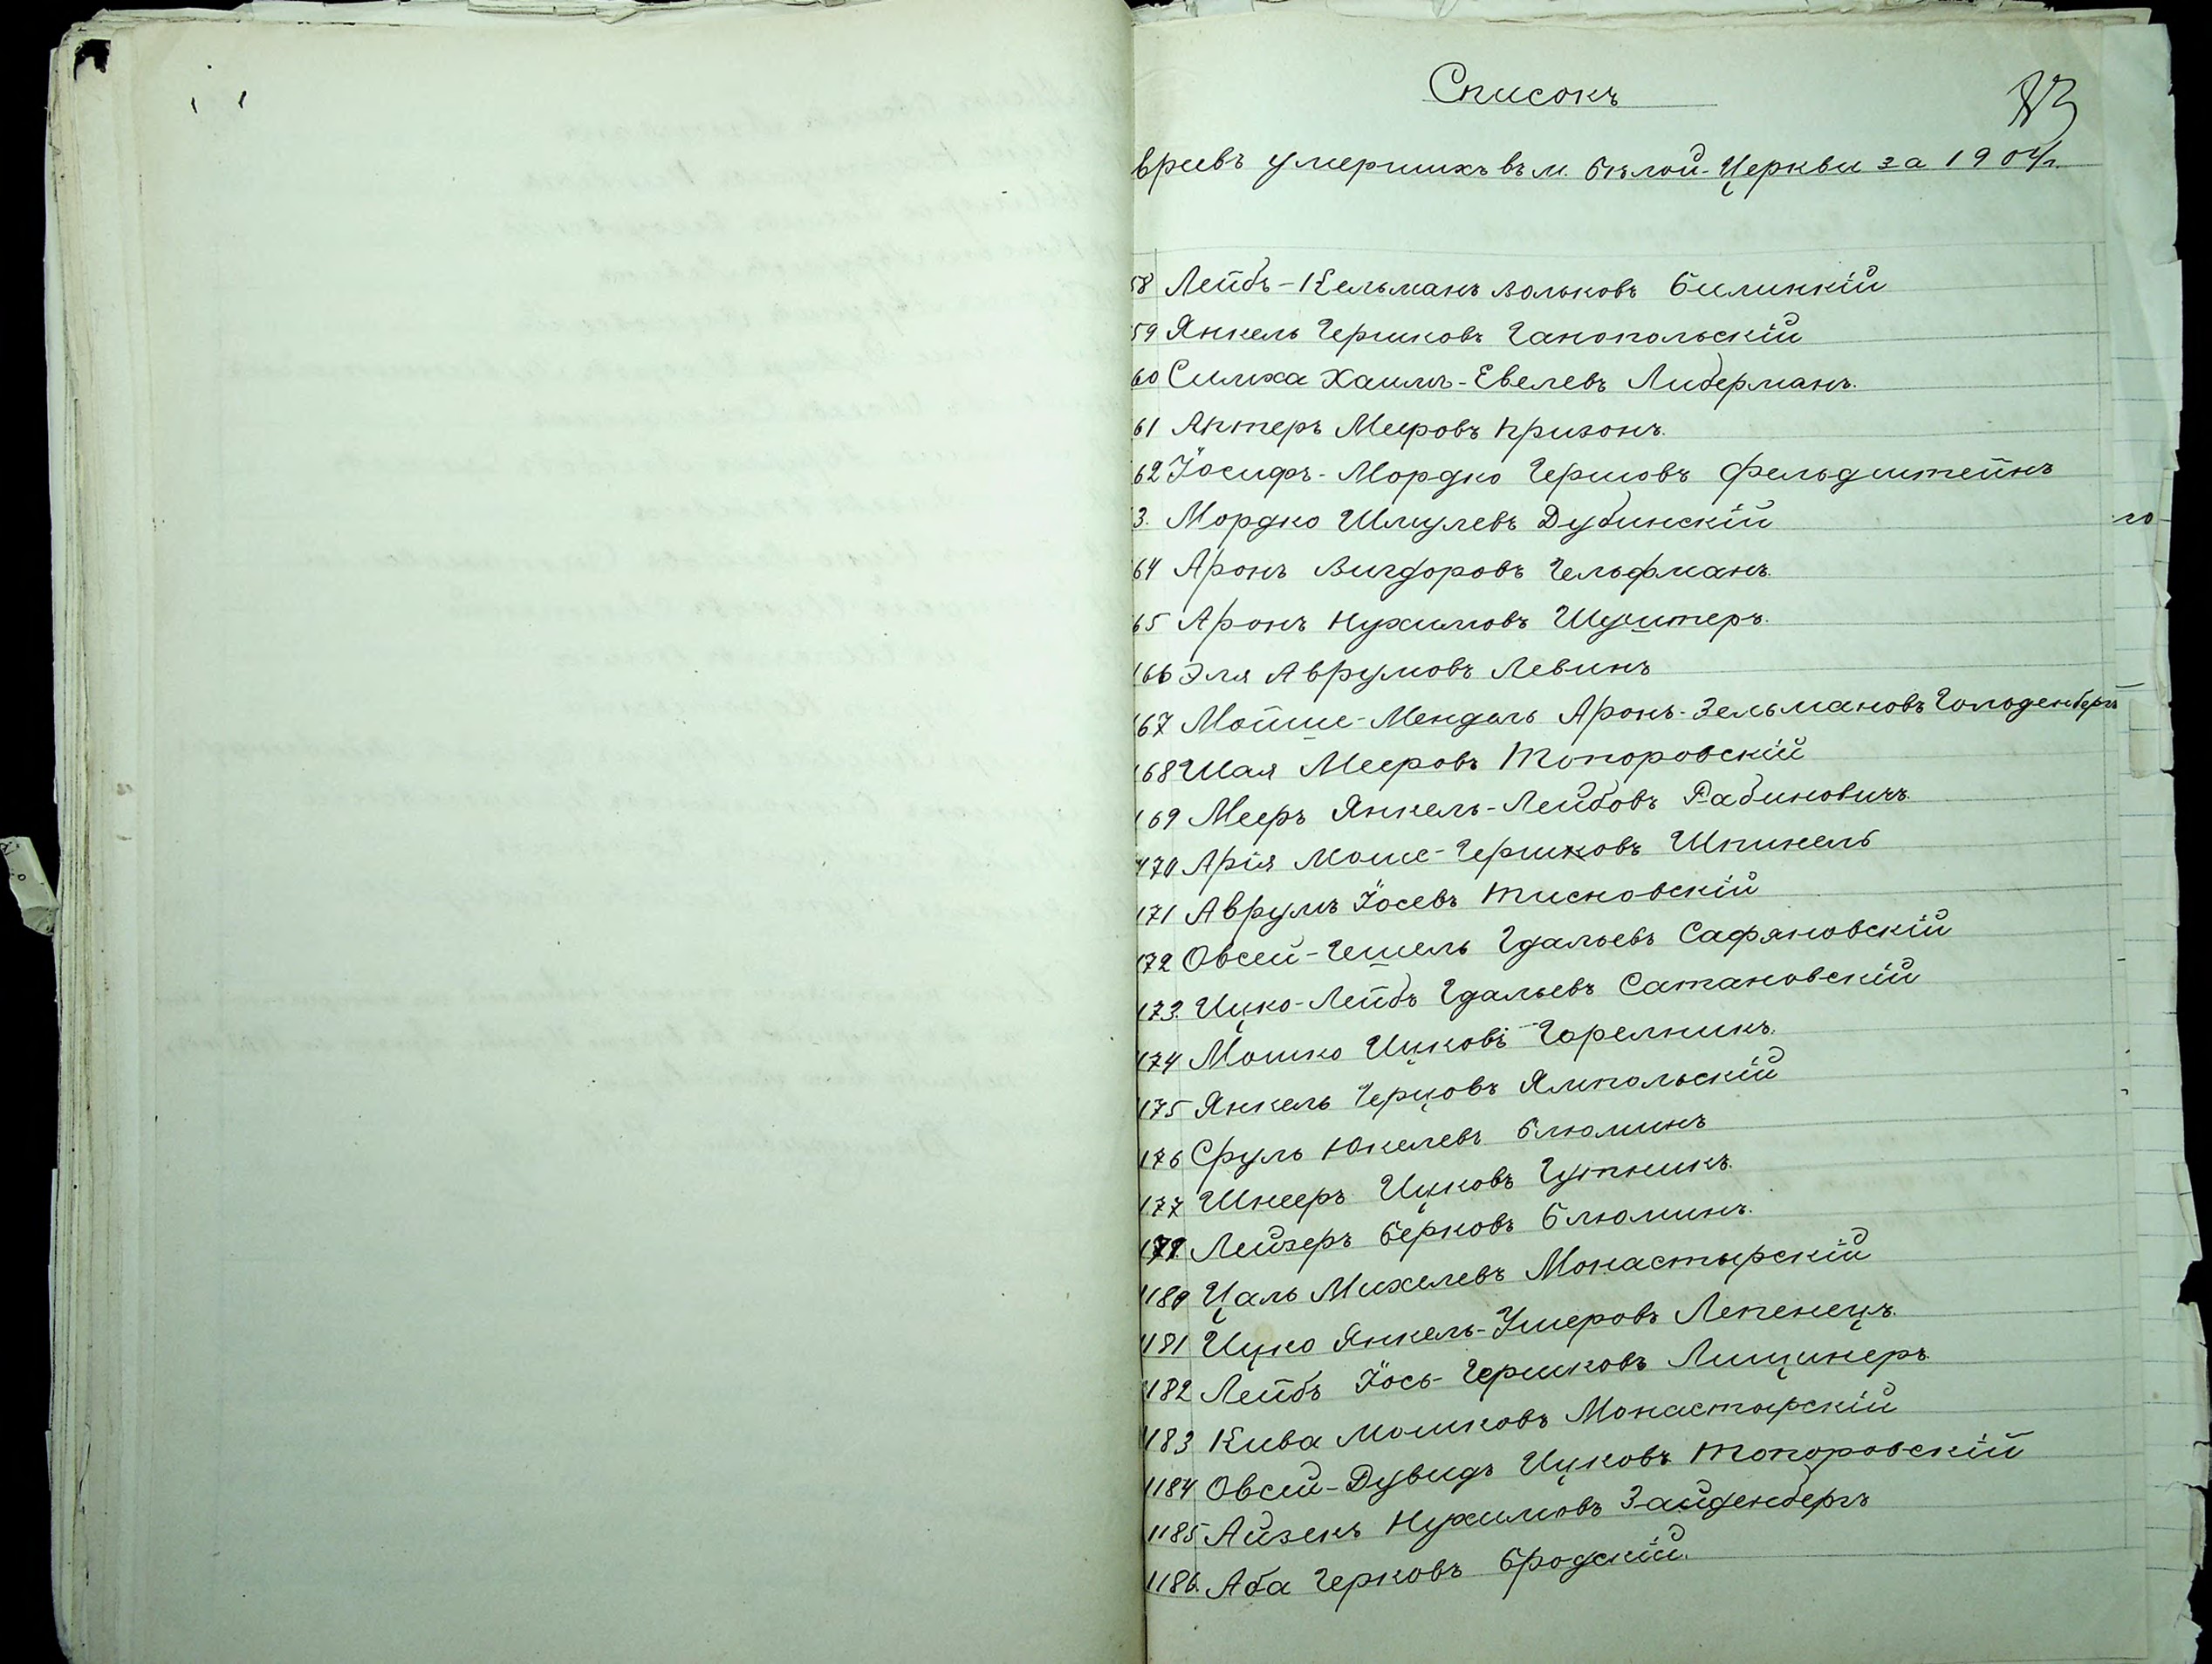 Списокъ
83
вреевъ умершихъ въ м. Бѣлой-Церкви за 1904г.
58 Лейбъ-Кельманъ Вольковъ Билинкій
59 Янкель Гершковъ Ганопольскій
60 Симха Хаимъ-Евелевъ Либерманъ.
61 Алтеръ Мееровъ Кризонъ.
62 Іосифъ-Мордко Гершовъ Фельдштейнъ
3. Мордко Шмулевъ Дубинскій
64 Аронъ Вигдоровъ Гельфманъ.
65 Аронъ Нухимовъ Шустеръ.
166 Эля Аврумовъ Левинъ
167 Мойше-Мендель Аронъ-Зельмановъ Гольденбергъ
168 Шая Мееровъ Топоровскій
169 Мееръ Янкель-Лейбовъ Рабиновичъ.
170 Арія Моше-Гершковъ Шпикель
171 Аврумъ Іосевъ Тисновскій
172 Овсей-Гешель Гдальевъ Сафяновскій
173. Ицко-Лейбъ Гдальевъ Сатановскій
174 Мошко Ицковъ Горелникъ.
175 Янкель Герцовъ Ямпольскій
176 Сруль Юкелевъ Блюминъ
177 Шнееръ Ицковъ Гутникъ.
179. Лейзеръ Берковъ Блюминъ.
1180 Цаль Михелевъ Монастырскій
1181 Ицко Янкель-Ушеровъ Лепенецъ.
1182 Лейбъ Іось-Гершковъ Лищинеръ.
1183 Кива Мошковъ Монастырскій
1184 Овсей-Дувидъ Ицковъ Топоровскій
1185 Айзекъ Нухимовъ Зайденбергъ
1186. Аба Герковъ Бродскій.